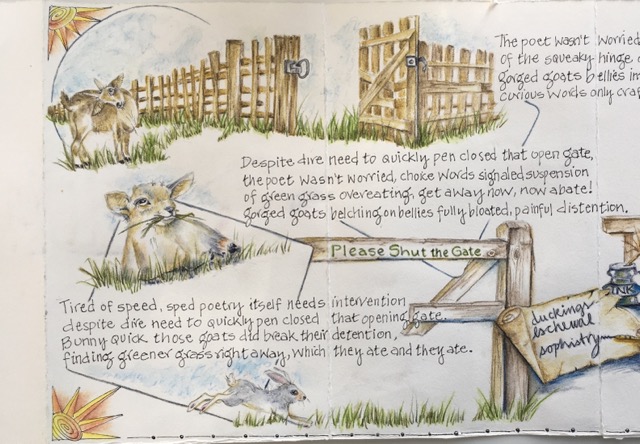 The poet wasn't worried
of the squeaky hinge,
gorged goats bellies im
curious words only craf
Despite dire need to quickly pen closed that open gate,
the poet wasn't worried, choice words signaled suspension
of green grass overeating, get away now, now abate!
gorged goats belching on bellies fully bloated, painful distention.
Please Shut the Gate
INK
duckings
eschewal
sophistry
Tired of speed, sped poetry itself needs intervention
despite dire need to quickly pen closed that opening gate.
Bunny quick those goats did break their detention,
finding greener grass right away, which they ate and they ate.